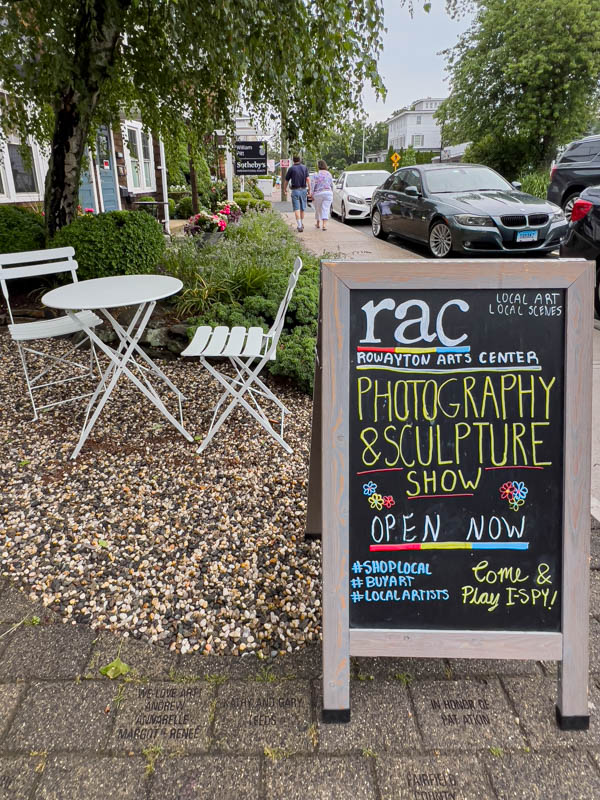 William
Pitt
Sotheby's
rac
LOCAL ART
LOCAL SCENES
ROWAYTON ARTS CENTER
PHOTOGRAPHY
& SCULPTURE
SHOW
OPEN NOW
#SHOPLOCAL
#BUYART
#LOCALARTISTS
Come &
Play I-SPY!
WE LOVE ART!
ANDREW
ANNABELLE
MARGOT & RENEÉ
KATHY AND GARY
LEEDS
IN HONOR OF
PAT ATKIN
FAIRFIELD
COUNTY